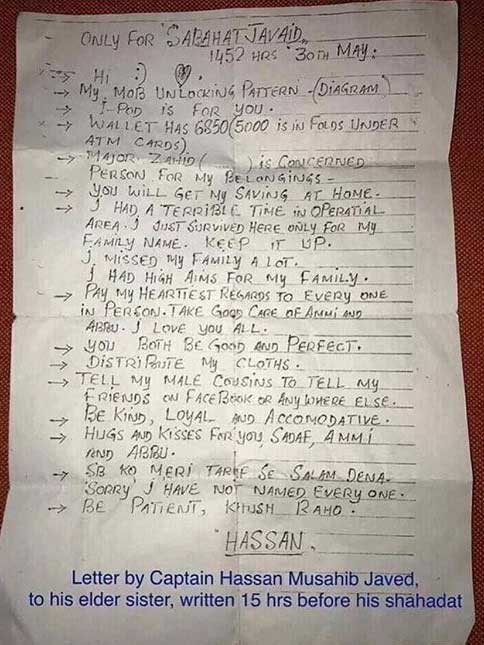 ONLY FOR "SABAHAT JAVAID"
1452 HRS 30TH MAY.
→ HI :) ♡.
→ MY MOB UNLOCKING PATTERN - (DIAGRAM)
→ I-POD IS FOR YOU.
→ WALLET HAS 6850(5000 IS IN FOLDS UNDER
ATM CARDS).
→ MAJOR ZAHID ( ) IS CONCERNED
PERSON FOR MY BELONGINGS -
→ YOU WILL GET MY SAVING AT HOME.
→ I HAD A TERRIBLE TIME IN OPERATIAL
AREA. I JUST SURVIVED HERE ONLY FOR MY
FAMILY NAME. KEEP IT UP.
I MISSED MY FAMILY A LOT.
I HAD HIGH AIMS FOR MY FAMILY.
→ PAY MY HEARTIEST REGARDS TO EVERY ONE
IN PERSON. TAKE GOOD CARE OF AMMI AND
ABBU. I LOVE YOU ALL.
→ YOU BOTH BE GOOD AND PERFECT.
→ DISTRIBUTE MY CLOTHS.
→ TELL MY MALE COUSINS TO TELL MY
FRIENDS ON FACEBOOK OR ANYWHERE ELSE.
→ BE KIND, LOYAL AND ACCOMODATIVE.
→ HUGS AND KISSES FOR YOU, SADAF, AMMI
AND ABBU.
→ SB KO MERI TARAF SE SALAM DENA.
'SORRY' I HAVE NOT NAMED EVERY ONE.
→ BE PATIENT, KHUSH RAHO.
HASSAN.
Letter by Captain Hassan Musahib Javed,
to his elder sister, written 15 hrs before his shahadat